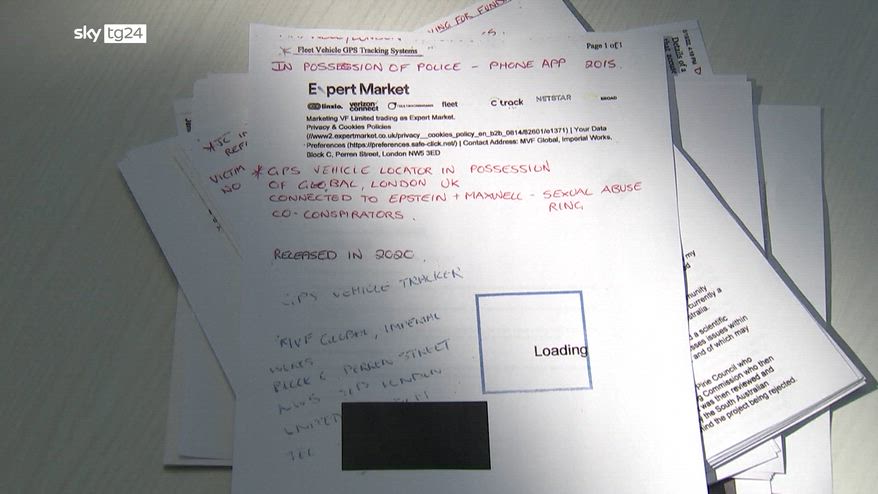 sky tg24
ING FOR FUND
Page 1 of 1
* Fleet Vehicle GPS Tracking Systems
IN POSSESSION OF POLICE - PHONE APP 2015.
Expert Market
linxio. verizon connect fleet ctrack NETSTAR
Marketing VF Limited trading as Expert Market.
Privacy & Cookies Policies
(//www2.expertmarket.co.uk/privacy__cookies_policy_en_b2b_0814/82601/e1371) | Your Data
Preferences (https://preferences.safe-click.net/) | Contact Address: MVF Global, Imperial Works,
Block C, Perren Street, London NW5 3ED
* JC IN
VICTIM
NO
* GPS VEHICLE LOCATOR IN POSSESSION
OF GLOBAL, LONDON UK
CONNECTED TO EPSTEIN + MAXWELL - SEXUAL ABUSE
CO-CONSPIRATORS. RING
RELEASED IN 2020
GPS VEHICLE TRACKER
MVF GLOBAL, IMPERIAL
WORKS
BLOCK C PERREN STREET
NW5 3ED LONDON
Loading
Details of a
my
munity
currently a
stralia.
d a scientific
sses issues within
and of which may
Pine Council who
g Commission who then
was then reviewed and
f the South Australian
And the project being rejected.